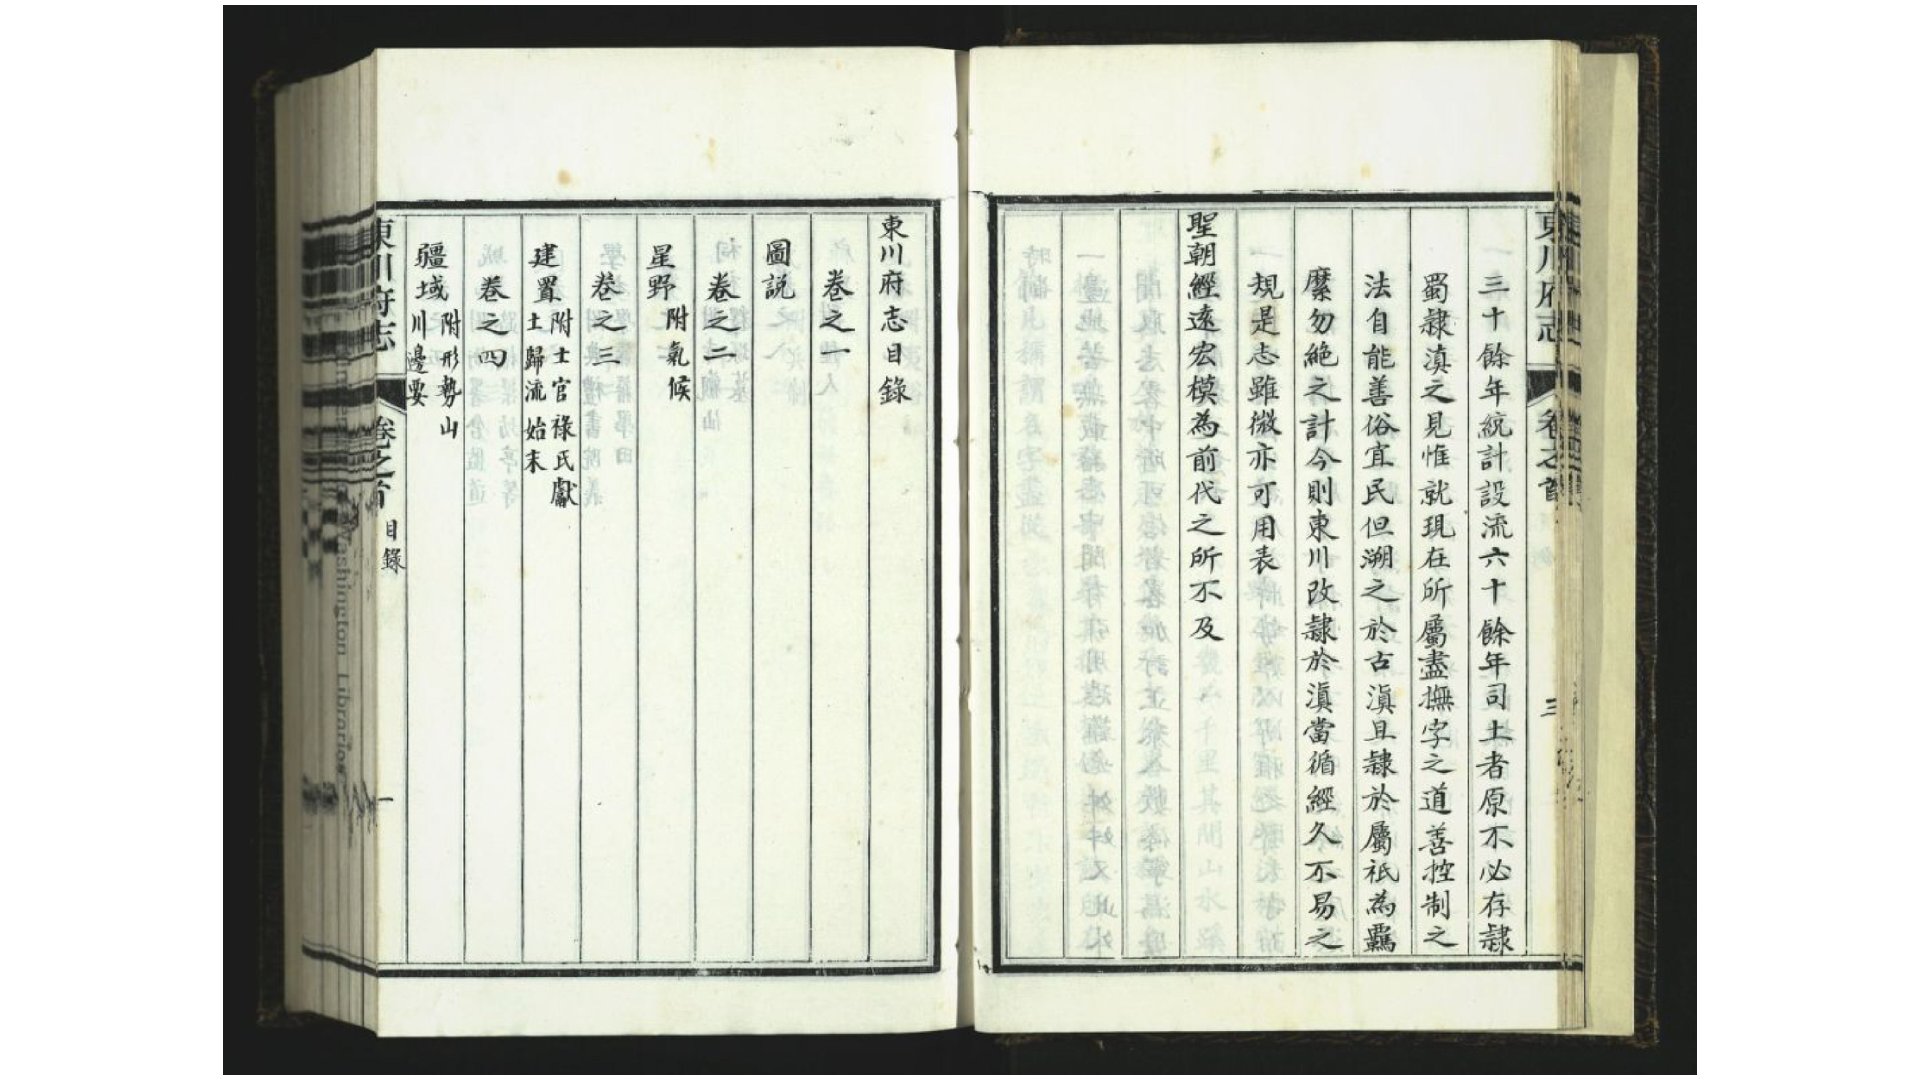 東川府志 卷之首 三
三十餘年統計設流六十餘年司土者原不必存隸
蜀隸滇之見惟就現在所屬盡撫字之道善控制之
法自能善俗宜民但溯之於古滇且隸於屬祇為羈
縻勿絶之計今則東川改隸於滇當循經久不易之
規是志雖微亦可用表
聖朝經遠宏模為前代之所不及
東川府志目錄
卷之一
圖説
卷之二
星野 附氣候
卷之三
建置 附土官祿氏獻
土歸流始末
卷之四
疆域 附形勢山
川邊要
東川府志 卷之首 目錄 一
Washington Libraries